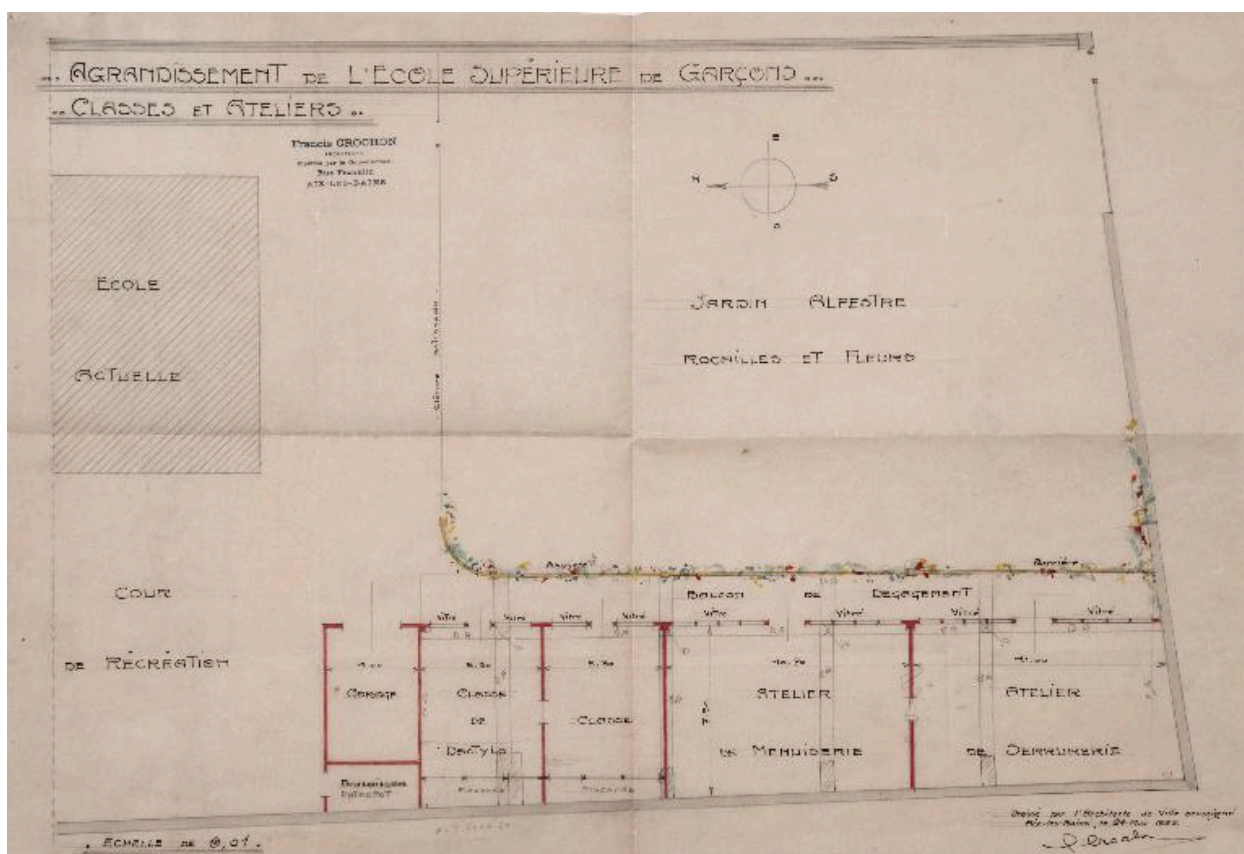 AGRANDISSEMENT DE L'ECOLE SUPÉRIEURE DE GARÇONS
CLASSES ET ATELIERS
Francis CROCHON
ARCHITECTE
Rue
AIX-LES-BAINS
E
N S
O
ECOLE
ACTUELLE
JARDIN ALPESTRE
ROCAILLES ET FLEURS
Clôture
Barrière
Barrière
BALCON DE DÉGAGEMENT
COUR
DE RÉCRÉATION
Vitré Vitré Vitré Vitré Vitré Vitré Vitré Vitré
GARAGE
CLASSE
DE
DACTYLO
CLASSE
ATELIER
DE MENUISERIE
ATELIER
DE SERRURERIE
ECHELLE DE 0,01
Dressé par l'Architecte de Ville soussigné
Aix-les-Bains, le 24 Mai